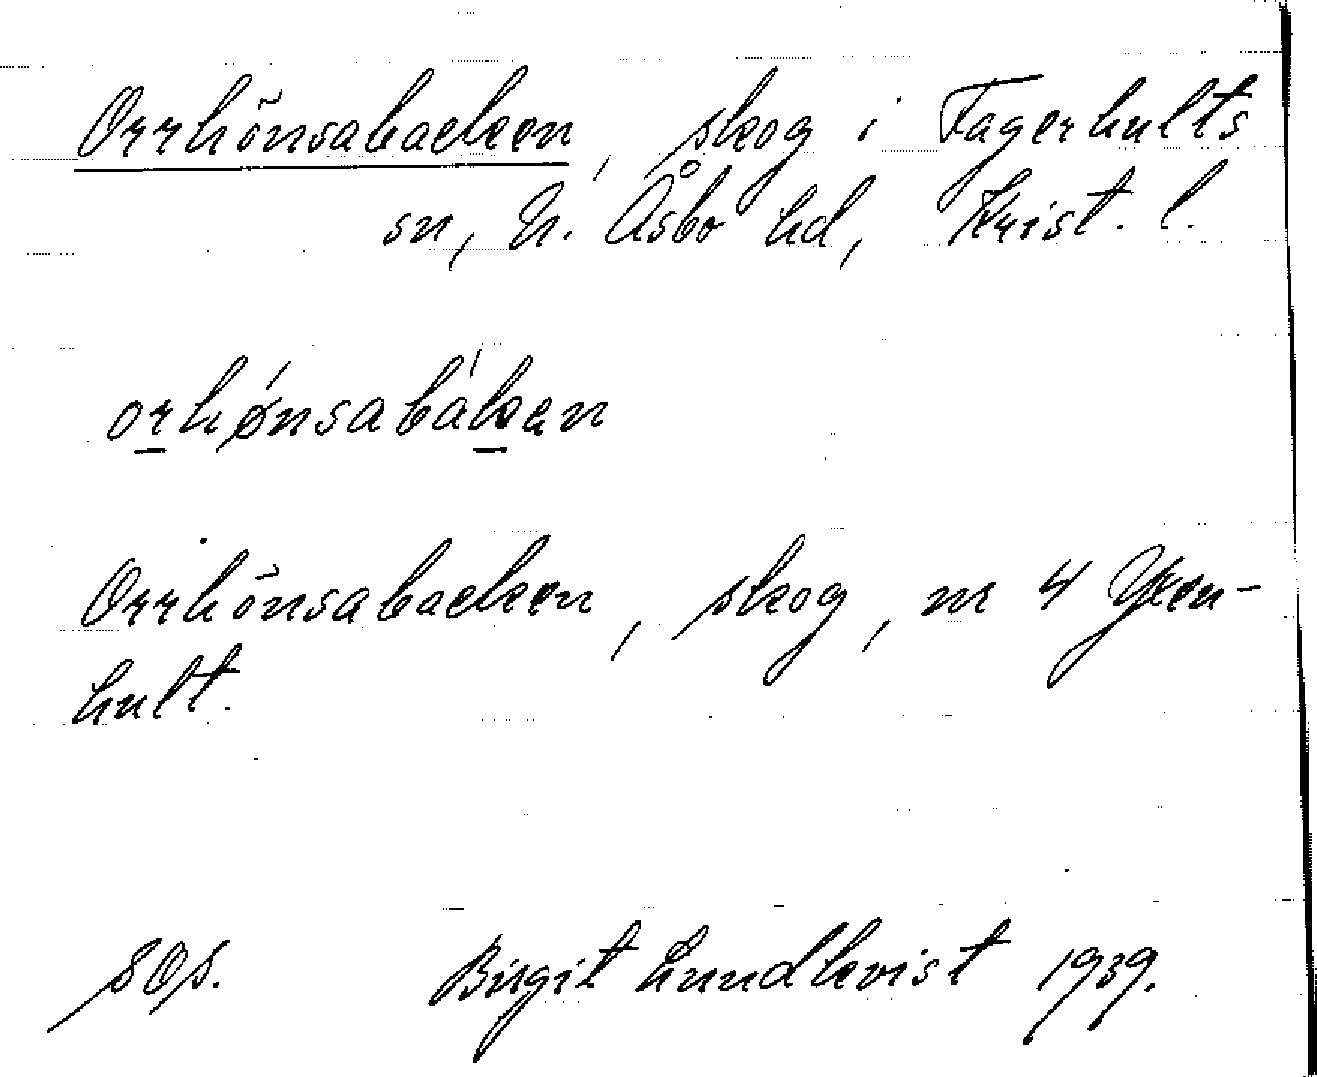 Orrhönsabacken, skog i Fagerhults
sn, N. Åsbo hd, Krist. l.
orhǿnsabák̲en
Orrhönsabacken, skog, nr 4 Yxen-
hult.
sOs. Birgit Lundkvist 1939.